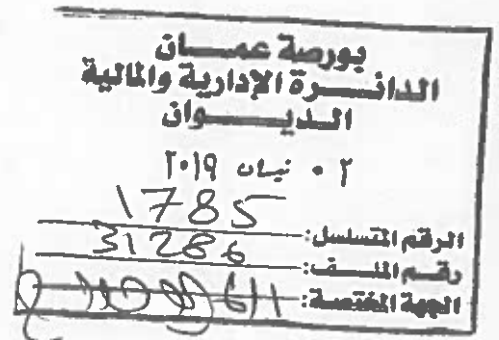 بورصة عمـــان
الدائـــرة الإدارية والمالية
الـديـــــوان
٠٢ نيسان ٢٠١٩
الرقم المتسلسل: 1785
رقـم الملـــف: 31286
الجهة المختصة: